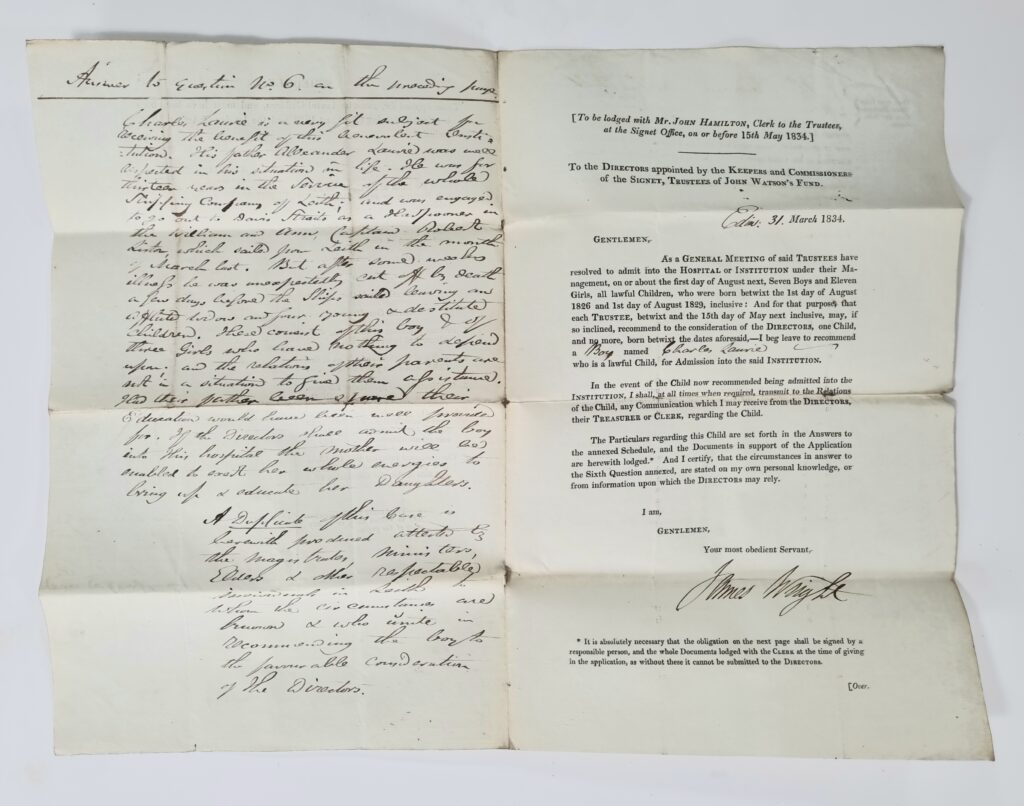 Answer to Question No. 6. on the preceding page.
Charles Laurie is a very fit subject for
receiving the benefit of this benevolent Insti-
tution. His father Alexander Laurie was well
respected in his situation in life. He was for
thirteen years in the Service of the whale
Fishing Company of Leith; and was engaged
to go out to Davis Straits as a Harpooner in
the William and Ann, Captain Robert
Liston which sailed from Leith in the month
of March last. But after some weeks
illness he was unexpectedly cut off by death
a few days before the Ship sailed leaving an
afflicted widow and four young & destitute
Children. These consist of this boy & of
three Girls who have nothing to depend
upon. and the relations of their parents are
not in a situation to give them assistance.
Had their father been spared their
Education would have been well provided
for. If the Directors shall admit the boy
into this hospital the mother will be
enabled to exert her whole energies to
bring up & educate her Daughters.
A Duplicate of this Case is
herewith produced attested by
the magistrates, ministers,
Elders & other respectable
individuals in Leith to
whom the circumstances are
known & who unite in
recommending the boy to
the favourable consideration
of the Directors.
[To be lodged with Mr. JOHN HAMILTON, Clerk to the Trustees,
at the Signet Office, on or before 15th May 1834.]
To the DIRECTORS appointed by the KEEPERS and COMMISSIONERS
of the SIGNET, TRUSTEES of JOHN WATSON'S FUND.
Edinr. 31. March 1834.
GENTLEMEN,
As a GENERAL MEETING of said TRUSTEES have
resolved to admit into the HOSPITAL or INSTITUTION under their Ma-
nagement, on or about the first day of August next, Seven Boys and Eleven
Girls, all lawful Children, who were born betwixt the 1st day of August
1826 and 1st day of August 1829, inclusive: And for that purpose that
each TRUSTEE, betwixt and the 15th day of May next inclusive, may, if
so inclined, recommend to the consideration of the DIRECTORS, one Child,
and no more, born betwixt the dates aforesaid,—I beg leave to recommend
a Boy named Charles Laurie
who is a lawful Child, for Admission into the said INSTITUTION.
In the event of the Child now recommended being admitted into the
INSTITUTION, I shall, at all times when required, transmit to the Relations
of the Child, any Communication which I may receive from the DIRECTORS,
their TREASURER or CLERK, regarding the Child.
The Particulars regarding this Child are set forth in the Answers to
the annexed Schedule, and the Documents in support of the Application
are herewith lodged.* And I certify, that the circumstances in answer to
the Sixth Question annexed, are stated on my own personal knowledge, or
from information upon which the DIRECTORS may rely.
I am,
GENTLEMEN,
Your most obedient Servant,
James Wright
* It is absolutely necessary that the obligation on the next page shall be signed by a
responsible person, and the whole Documents lodged with the CLERK at the time of giving
in the application, as without these it cannot be submitted to the DIRECTORS.
[Over.